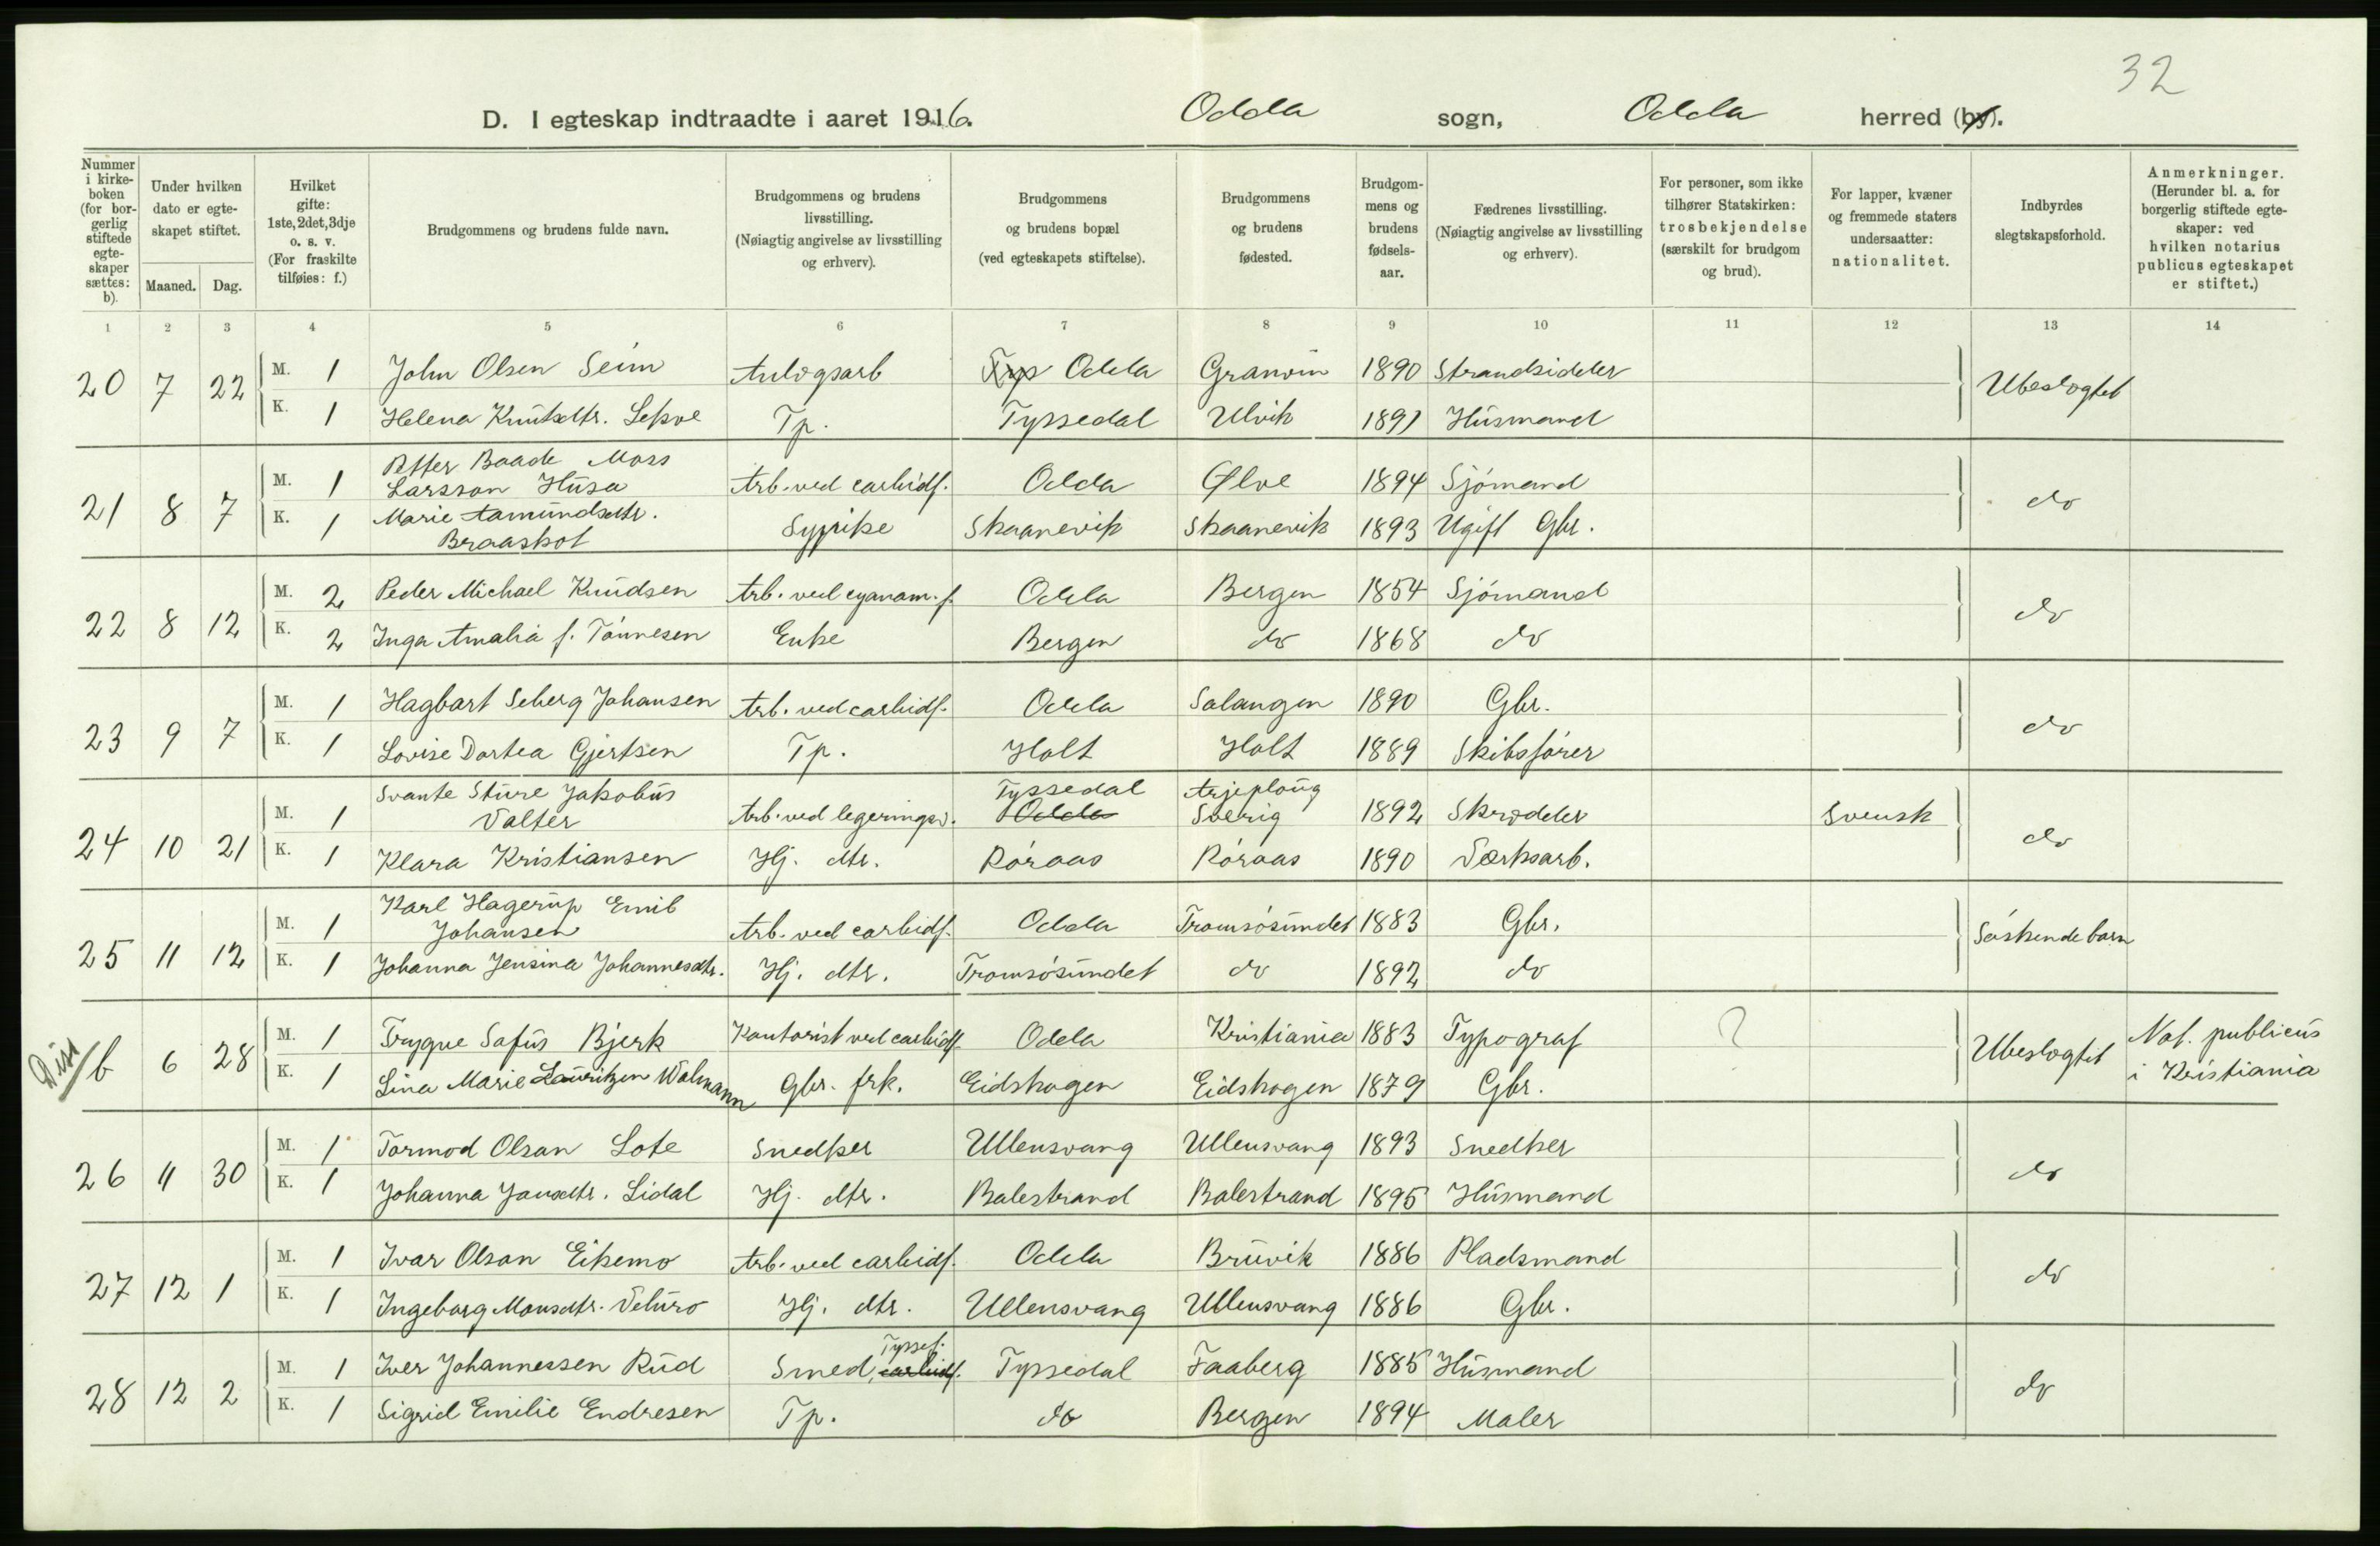 32
D. I egteskap indtraadte i aaret 1916. Odda sogn, Odda herred (by).
Nummer i kirkeboken (for borgerlig stiftede egteskaper sættes: b).
Under hvilken dato er egteskapet stiftet.
Maaned. Dag.
Hvilket gifte: 1ste, 2det, 3dje o. s. v. (For fraskilte tilføies: f.)
Brudgommens og brudens fulde navn.
Brudgommens og brudens livsstilling. (Nøiagtig angivelse av livsstilling og erhverv).
Brudgommens og brudens bopæl (ved egteskapets stiftelse).
Brudgommens og brudens fødested.
Brudgommens og brudens fødselsaar.
Fædrenes livsstilling. (Nøiagtig angivelse av livsstilling og erhverv).
For personer, som ikke tilhører Statskirken: trosbekjendelse (særskilt for brudgom og brud).
For lapper, kvæner og fremmede staters undersaatter: nationalitet.
Indbyrdes slegtskapsforhold.
Anmerkninger. (Herunder bl. a. for borgerlig stiftede egteskaper: ved hvilken notarius publicus egteskapet er stiftet.)
1 2 3 4 5 6 7 8 9 10 11 12 13 14
20 7 22 M. 1 John Olsen Seim Anlægsarb Typ Odda Granvin 1890 Strandsidder Ubeslægtet
K. 1 Helena Knutsdtr. Lekve Tp. Tyssedal Ulvik 1891 Husmand
21 8 7 M. 1 Petter Baade Moss Larsson Husa Arb. ved carbidf. Odda Ølve 1894 Sjómand do
K. 1 Marie Aamundsdtr. Braaskot Sypike Skaanevik Skaanevik 1893 Ugift Gbr.
22 8 12 M. 2 Peder Michael Knudsen Arb. ved cyanam. f. Odda Bergen 1854 Sjómand do
K. 2 Inga Amalia f. Tónnesen Enke Bergen do 1868 do
23 9 7 M. 1 Hagbart Seberg Johansen Arb. ved carbidf. Odda Salangen 1890 Gbr. do
K. 1 Lovise Dortea Gjertsen Tp. Holt Holt 1889 Skibsfórer
24 10 21 M. 1 Svante Sture Jakobus Valter Arb. ved legeringsv. Tyssedal Odda Arjeploug Sverig 1892 Skrædder Svensk do
K. 1 Klara Kristiansen Hj. dtr. Róraas Róraas 1890 Værksarb.
25 11 12 M. 1 Karl Hagerup Emil Johansen Arb. ved carbidf. Odda Tromsósundet 1883 Gbr. Sóskendebarn
K. 1 Johanna Jensine Johannesdtr. Hj. dtr. Tromsósundet do 1892 do
Diss b 6 28 M. 1 Trygve Sofus Bjerk Kontorist ved carbidf Odda Kristiania 1883 Typograf ? Ubeslægtet Not. publicus i Kristiania
K. 1 Lina Marie Lauritzen Wolmann Gbr. frk. Eidskogen Eidskogen 1879 Gbr.
26 11 30 M. 1 Tormod Olsan Lote Snedker Ullensvang Ullensvang 1893 Snedker do
K. 1 Johanna Jansdtr. Lidal Hj. dtr. Balestrand Balestrand 1895 Husmand
27 12 1 M. 1 Ivar Olsan Eikemo Arb. ved carbidf. Odda Bruvik 1886 Pladsmand do
K. 1 Ingeborg Monsdtr. Veluro Hj. dtr. Ullensvang Ullensvang 1886 Gbr.
28 12 2 M. 1 Iver Johannessen Rud Smed, Tyssef. carbidf. Tyssedal Faaberg 1885 Husmand do
K. 1 Sigrid Emilie Endresen Tp. do Bergen 1894 Maler